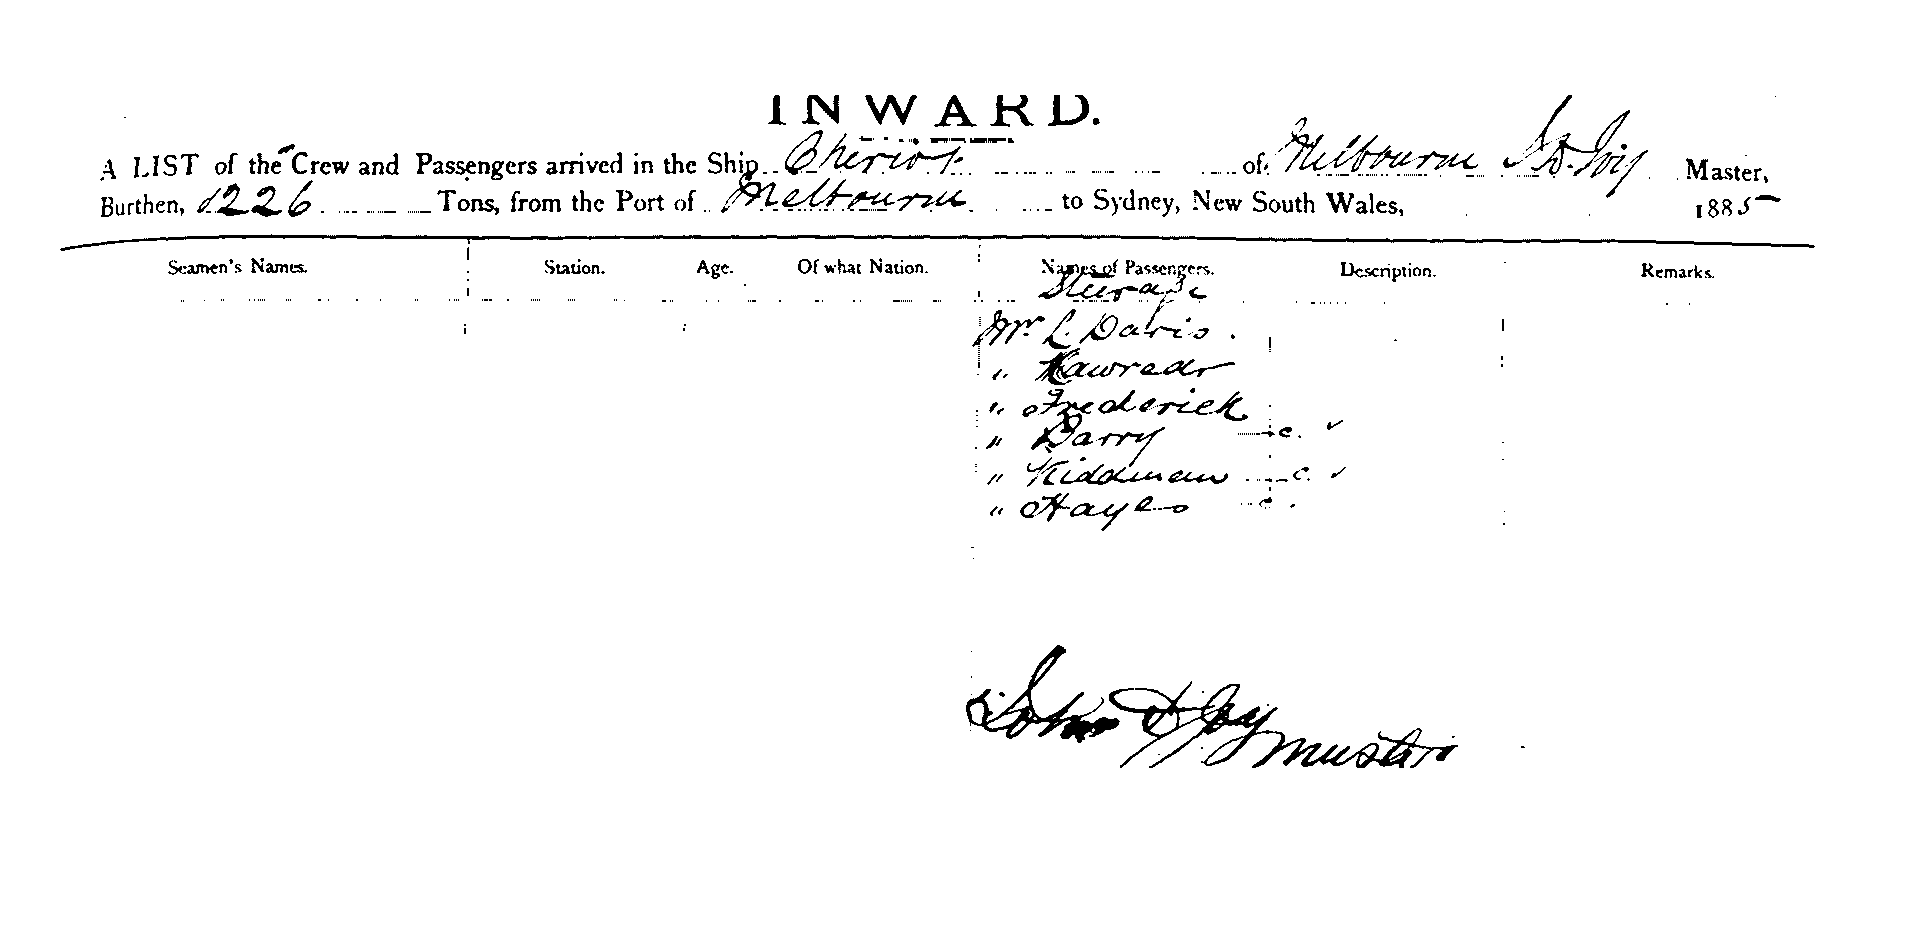 INWARD.
A LIST of the Crew and Passengers arrived in the Ship Cheviot of Melbourne J D. Joy Master,
Burthen, 1226 Tons, from the Port of Melbourne to Sydney, New South Wales, 1885
Seamen's Names. Station. Age. Of what Nation. Names of Passengers. Description. Remarks.
Steerage
Mr L. Davis.
" 
" Frederick
" Barry c. ✓
" Kiddman c. ✓
" Hayes c.
John D Joy
Master